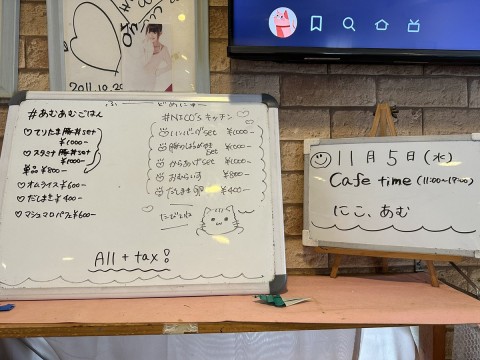 2011.10.20
フードめにゅー
#あむあむごはん
♡てりたま豚丼set
¥1000-
♡スタミナ豚丼set
¥1000-
単品 ¥800-
♡オムライス¥600-
♡だしまき¥400-
♡マシュマロパフェ¥600-
#NICO'sキッチン♡
set ¥1000-
set ¥1000-
からあげset ¥1000-
おむらいす ¥800-
だしまき卵 ¥400-
All + tax!
11月5日(水)
Cafe time (11:00~17:00)
にこ、あむ